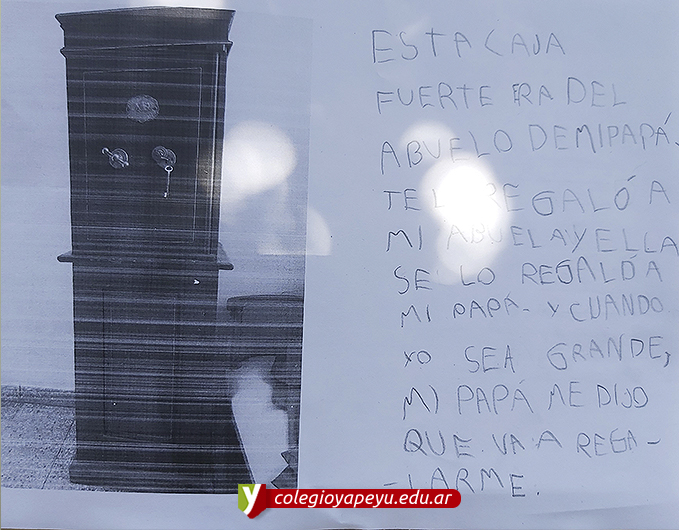 ESTA CAJA
FUERTE ERA DEL
ABUELO DE MI PAPÁ.
REGALÓ A
MI ABUELA Y ELLA
SE LO REGALÓ A
MI PAPÁ- Y CUANDO
YO SEA GRANDE,
MI PAPÁ ME DIJO
QUE VA A REGA-
-LARME.
colegioyapeyu.edu.ar